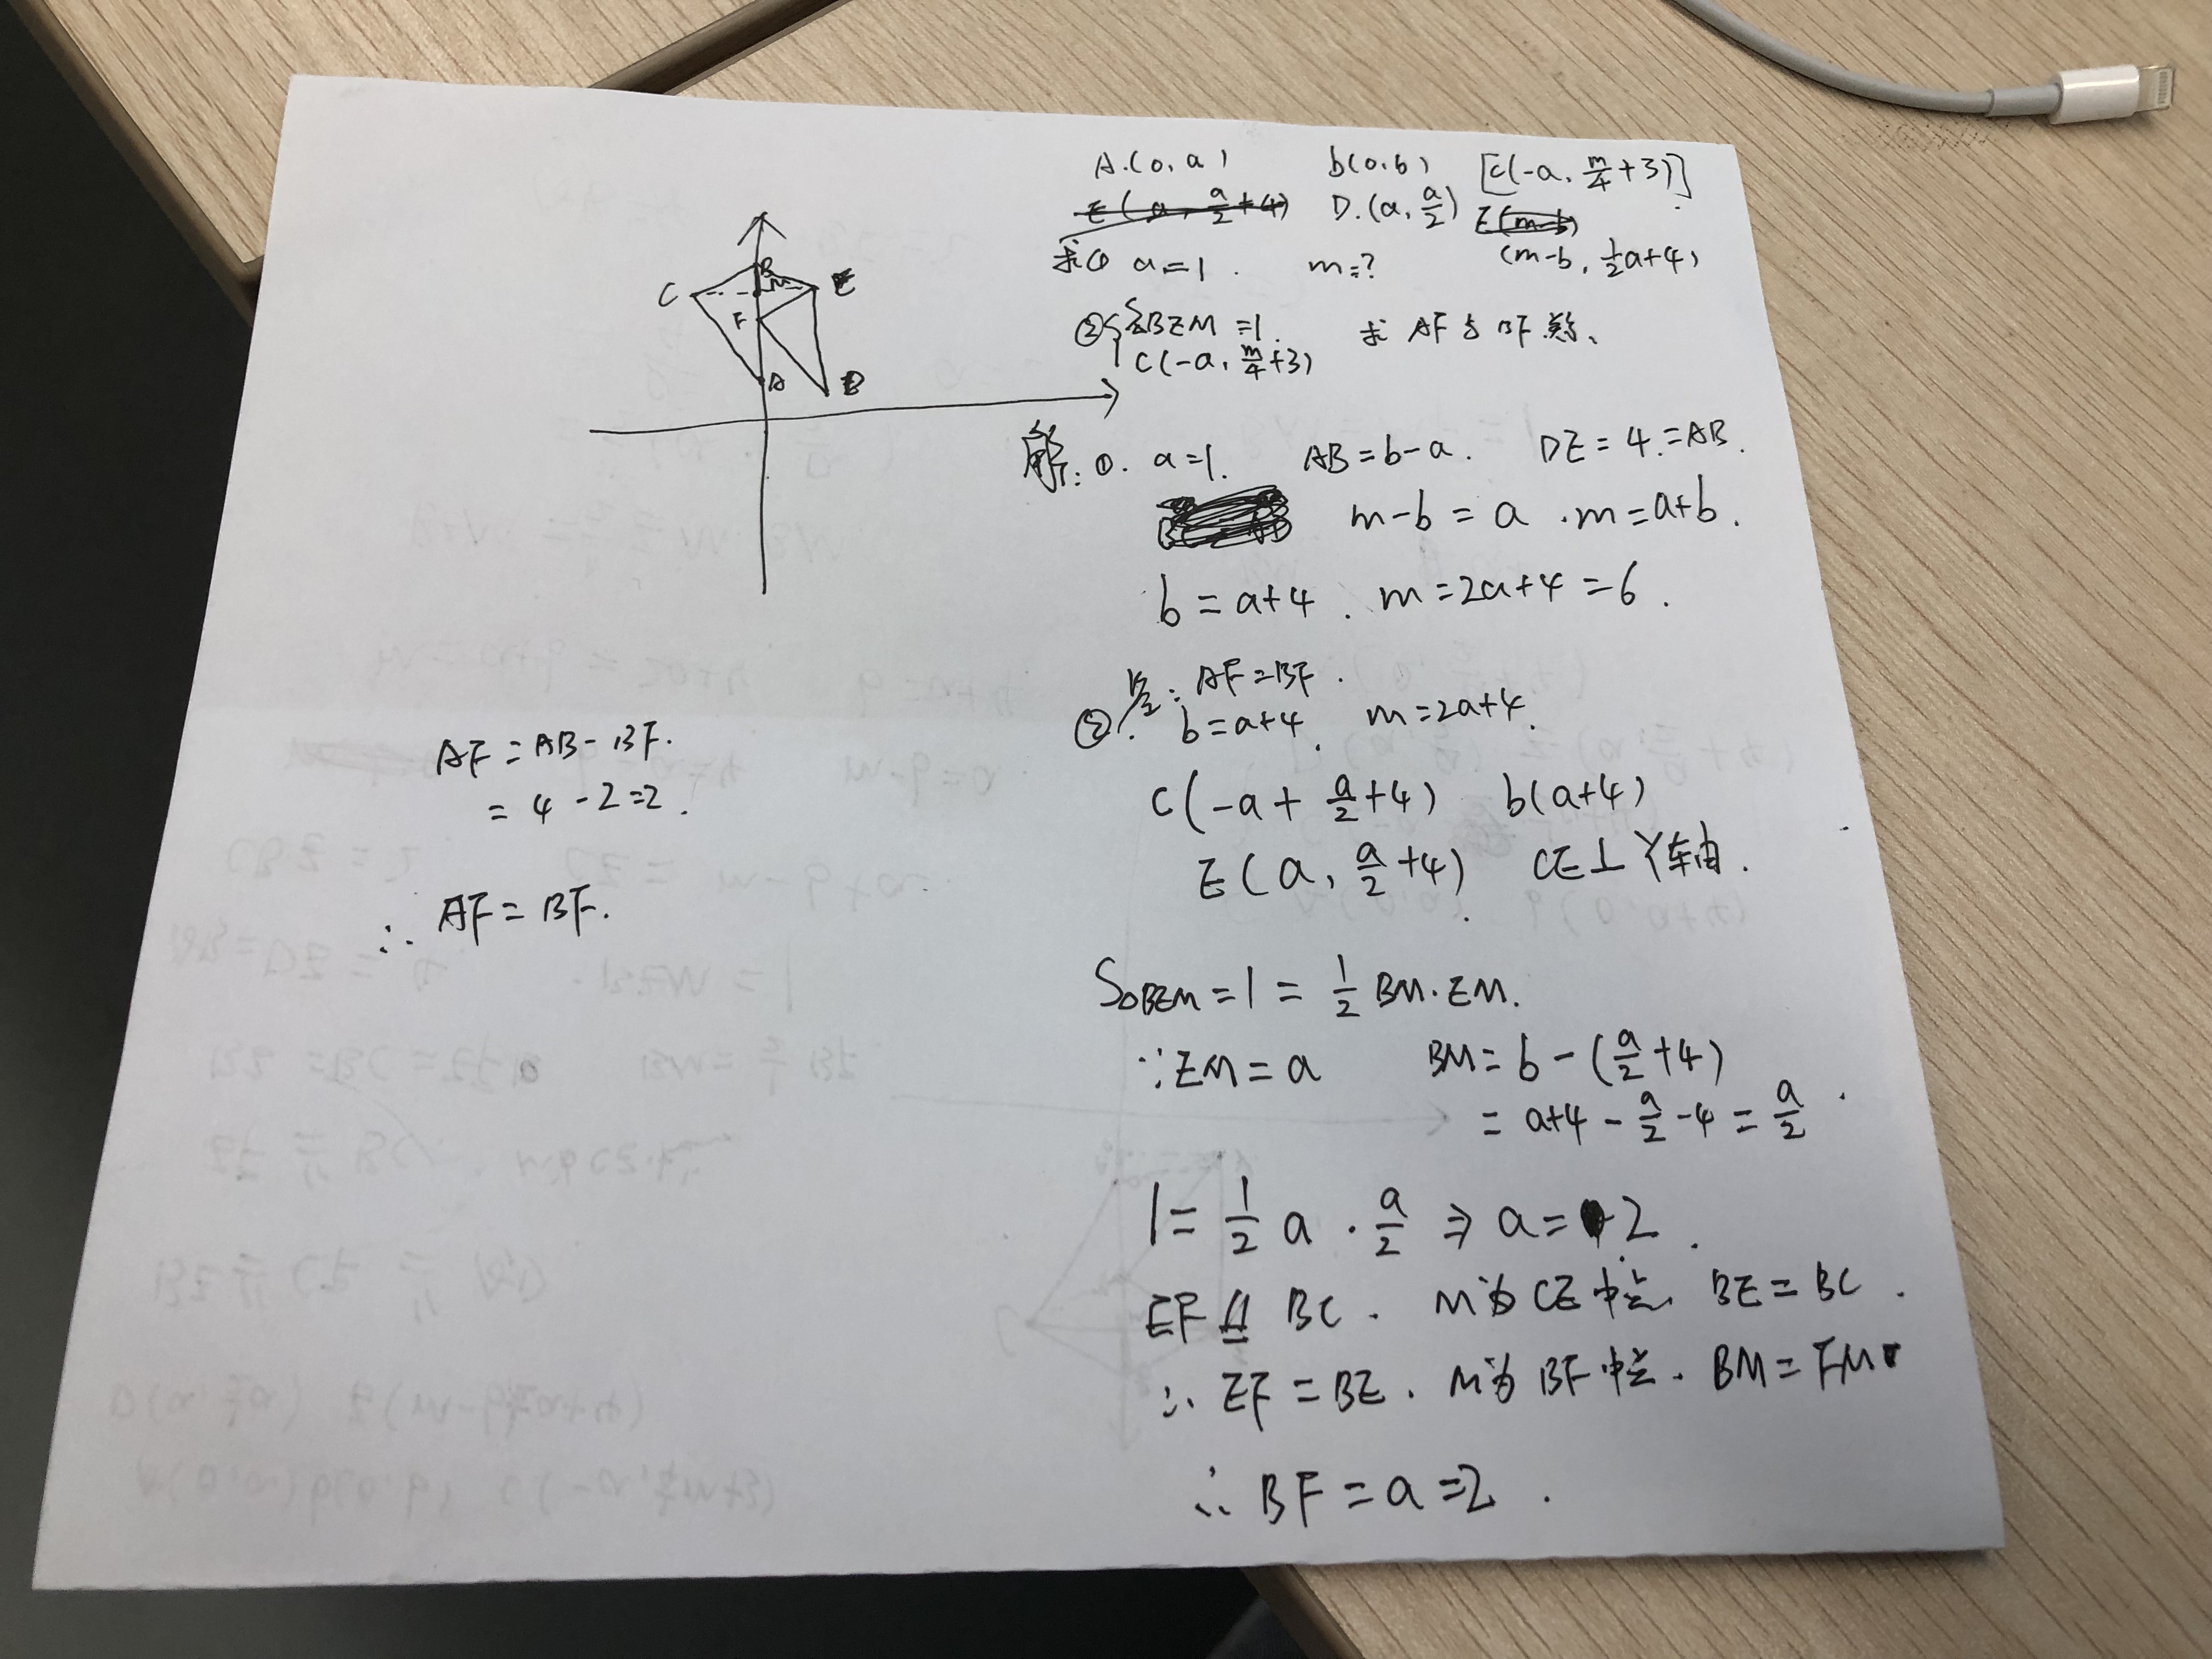 A.(0,a) b(0,b) [C(-a, m/4+3)]
E(a, a/2+4) D.(a, a/2) E(m-b) (m-b, 1/2a+4)
求① a=1. m=?
②S△BEM=1 求 AF与BF
C(-a, m/4+3)
解:①. a=1. AB=b-a. DE=4.=AB.
m-b=a.m=a+b.
b=a+4.m=2a+4=6.
②. AF=BF.
b=a+4. m=2a+4.
C(-a+a/2+4) b(a+4)
E(a, a/2+4) CE⊥Y轴.
S△BEM=1=1/2BM.EM.
∵EM=a BM=b-(a/2+4)
=a+4-a/2-4=a/2.
1=1/2a.a/2⇒a=2.
EF∥BC. M为CE中点, BE=BC.
∵EF=BE. M为BF中点. BM=FM
∴BF=a=2.
AF=AB-BF.
=4-2=2.
∴AF=BF.
C
F
B
M
A
D
E